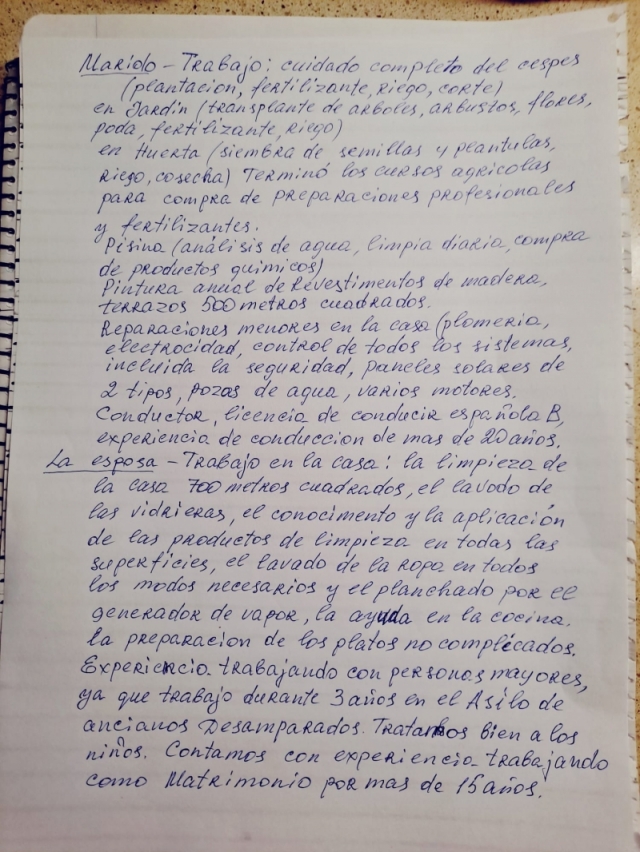 Marido - Trabajo: cuidado completo del cespes
(plantacion, fertilizante, riego, corte)
en Jardin (transplante de arboles, arbustos, flores,
poda, fertilizante, riego)
en Huerta (siembra de semillas y plantulas,
riego, cosecha) Terminó los cursos agricolas
para compra de preparaciones profesionales
y fertilizantes.
Pisina (análisis de agua, limpia diaria, compra
de productos quimicos)
Pintura anual de Revestimentos de madera,
terrazos 500 metros cuadrados.
Reparaciones menores en la casa (plomeria,
electrocidad, control de todos los sistemas,
incluida la seguridad, paneles solares de
2 tipos, pozas de agua, varios motores.
Conductor, licencia de conducir española B,
experiencia de conduccion de mas de 20 años.
La esposa - Trabajo en la casa: la limpieza de
la casa 700 metros cuadrados, el lavodo de
las vidrieras, el conocimento y la aplicación
de las productos de limpieza en todas las
superficies, el lavado de la ropa en todos
los modos necesarios y el planchado por el
generador de vapor, la ayuda en la cocina.
la preparacion de los platos no complicados.
Experiencia trabajando con personas mayores,
ya que trabajo durante 3 años en el Asilo de
ancianos Desamparados. Tratamos bien a los
niños. Contamos con experiencia trabajando
como Matrimonio por mas de 15 años.